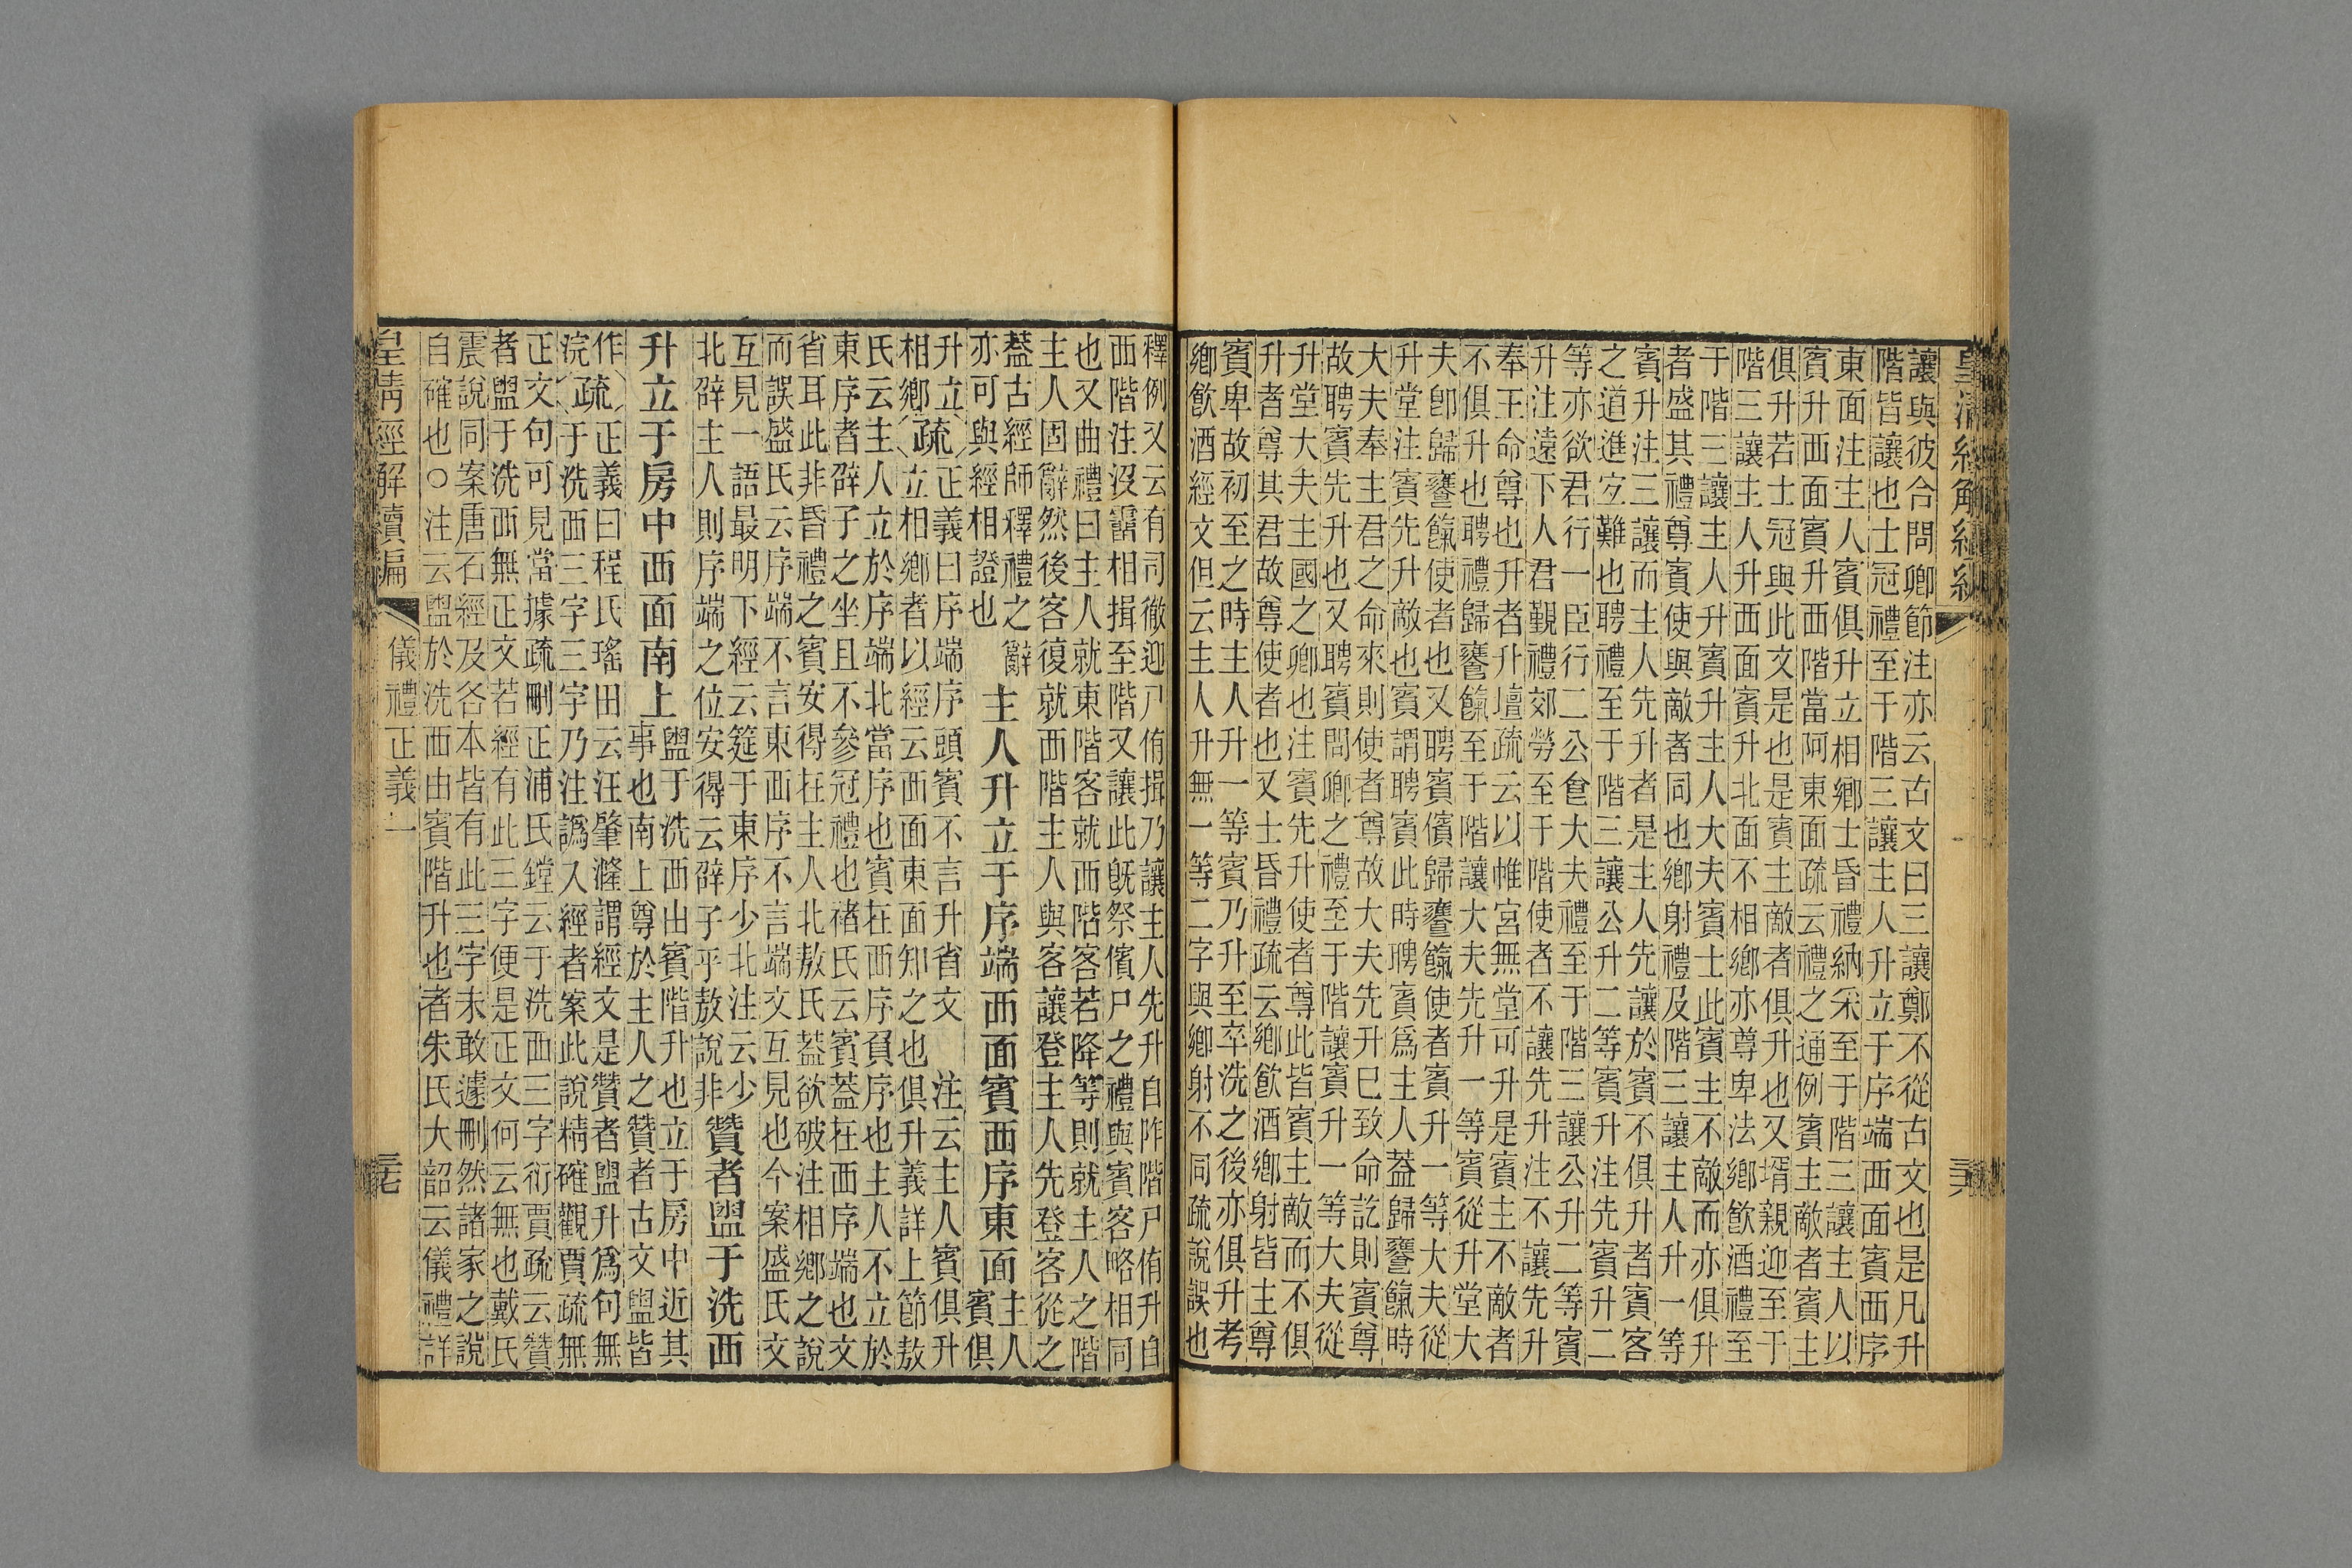 皇清經解續編
三六
讓與彼合問卿節注亦云古文曰三讓鄭不從古文也是凡升
階皆讓也士冠禮至于階三讓主人升立于序端西面賓西序
東面注主人賓俱升立相鄉士昏禮納采至于階三讓主人以
賓升西面賓升西階當阿東面疏云禮之通例賓主敵者賓主
俱升若士冠與此文是也是賓主敵者俱升也又壻親迎至于
階三讓主人升西面賓升北面不相鄉亦尊卑法鄉飮酒禮至
于階三讓主人升賓升主人大夫賓士此賓主不敵而亦俱升
者盛其禮尊賓使與敵者同也鄉射禮及階三讓主人升一等
賓升注三讓而主人先升者是主人先讓於賓不俱升者賓客
之道進宐難也聘禮至于階三讓公升二等賓升注先賓升二
等亦欲君行一臣行二公食大夫禮至于階三讓公升二等賓
升注遠下人君覲禮郊勞至于階使者不讓先升注不讓先升
奉王命尊也升者升壇疏云以帷宮無堂可升是賓主不敵者
不俱升也聘禮歸饔餼至于階讓大夫先升一等賓從升堂大
夫卽歸饔餼使者也又聘賓儐歸饔餼使者賓升一等大夫從
升堂注賓先升敵也賓謂聘賓此時聘賓爲主人蓋歸饔餼時
大夫奉主君之命來則使者尊故大夫先升巳致命訖則賓尊
故聘賓先升也又聘賓問卿之禮至于階讓賓升一等大夫從
升堂大夫主國之卿也注賓先升使者尊此皆賓主敵而不俱
升者尊其君故尊使者也又士昏禮疏云鄉飮酒鄉射皆主尊
賓卑故初至之時主人升一等賓乃升至卒洗之後亦俱升考
鄉飮酒經文但云主人升無一等二字與鄉射不同疏說誤也
釋例又云有司徹迎尸侑揖乃讓主人先升自阼階尸侑升自
西階注沒霤相揖至階又讓此旣祭儐尸之禮與賓客略相同
也又曲禮曰主人就東階客就西階客若降等則就主人之階
主人固辭然後客復就西階主人與客讓登主人先登客從之
蓋古經師釋禮之辭
亦可與經相證也
主人升立于序端西面賓西序東面
主人
賓俱
升立
相鄉
疏
正義曰序端序頭賓不言升省文也 注云主人賓俱升
立相鄉者以經云西面東面知之也俱升義詳上節敖
氏云主人立於序端北當序也賓在西序負序也主人不立於
東序者辟子之坐且不參冠禮也褚氏云賓蓋在西序端也文
省耳此非昏禮之賓安得在主人北敖氏蓋欲破注相鄉之說
而誤盛氏云序端不言東西序不言端文互見也今案盛氏文
互見一語最明下經云筵于東序少北注云少
北辟主人則序端之位安得云辟子乎敖說非
贊者盥于洗西
升立于房中西面南上
盥于洗西由賓階升也立于房中近其
事也南上尊於主人之贊者古文盥皆
作
浣
疏
正義曰程氏瑤田云汪肇漋謂經文是贊者盥升爲句無
于洗西三字三字乃注譌入經者案此說精確觀賈疏無
正文句可見當據疏刪正浦氏鏜云于洗西三字衍賈疏云贊
者盥于洗西無正文若經有此三字便是正文何云無也戴氏
震說同案唐石經及各本皆有此三字未敢遽刪然諸家之說
自確也○注云盥於洗西由賓階升也者朱氏大韶云儀禮詳
皇淸經解續編
儀禮正義一
三七